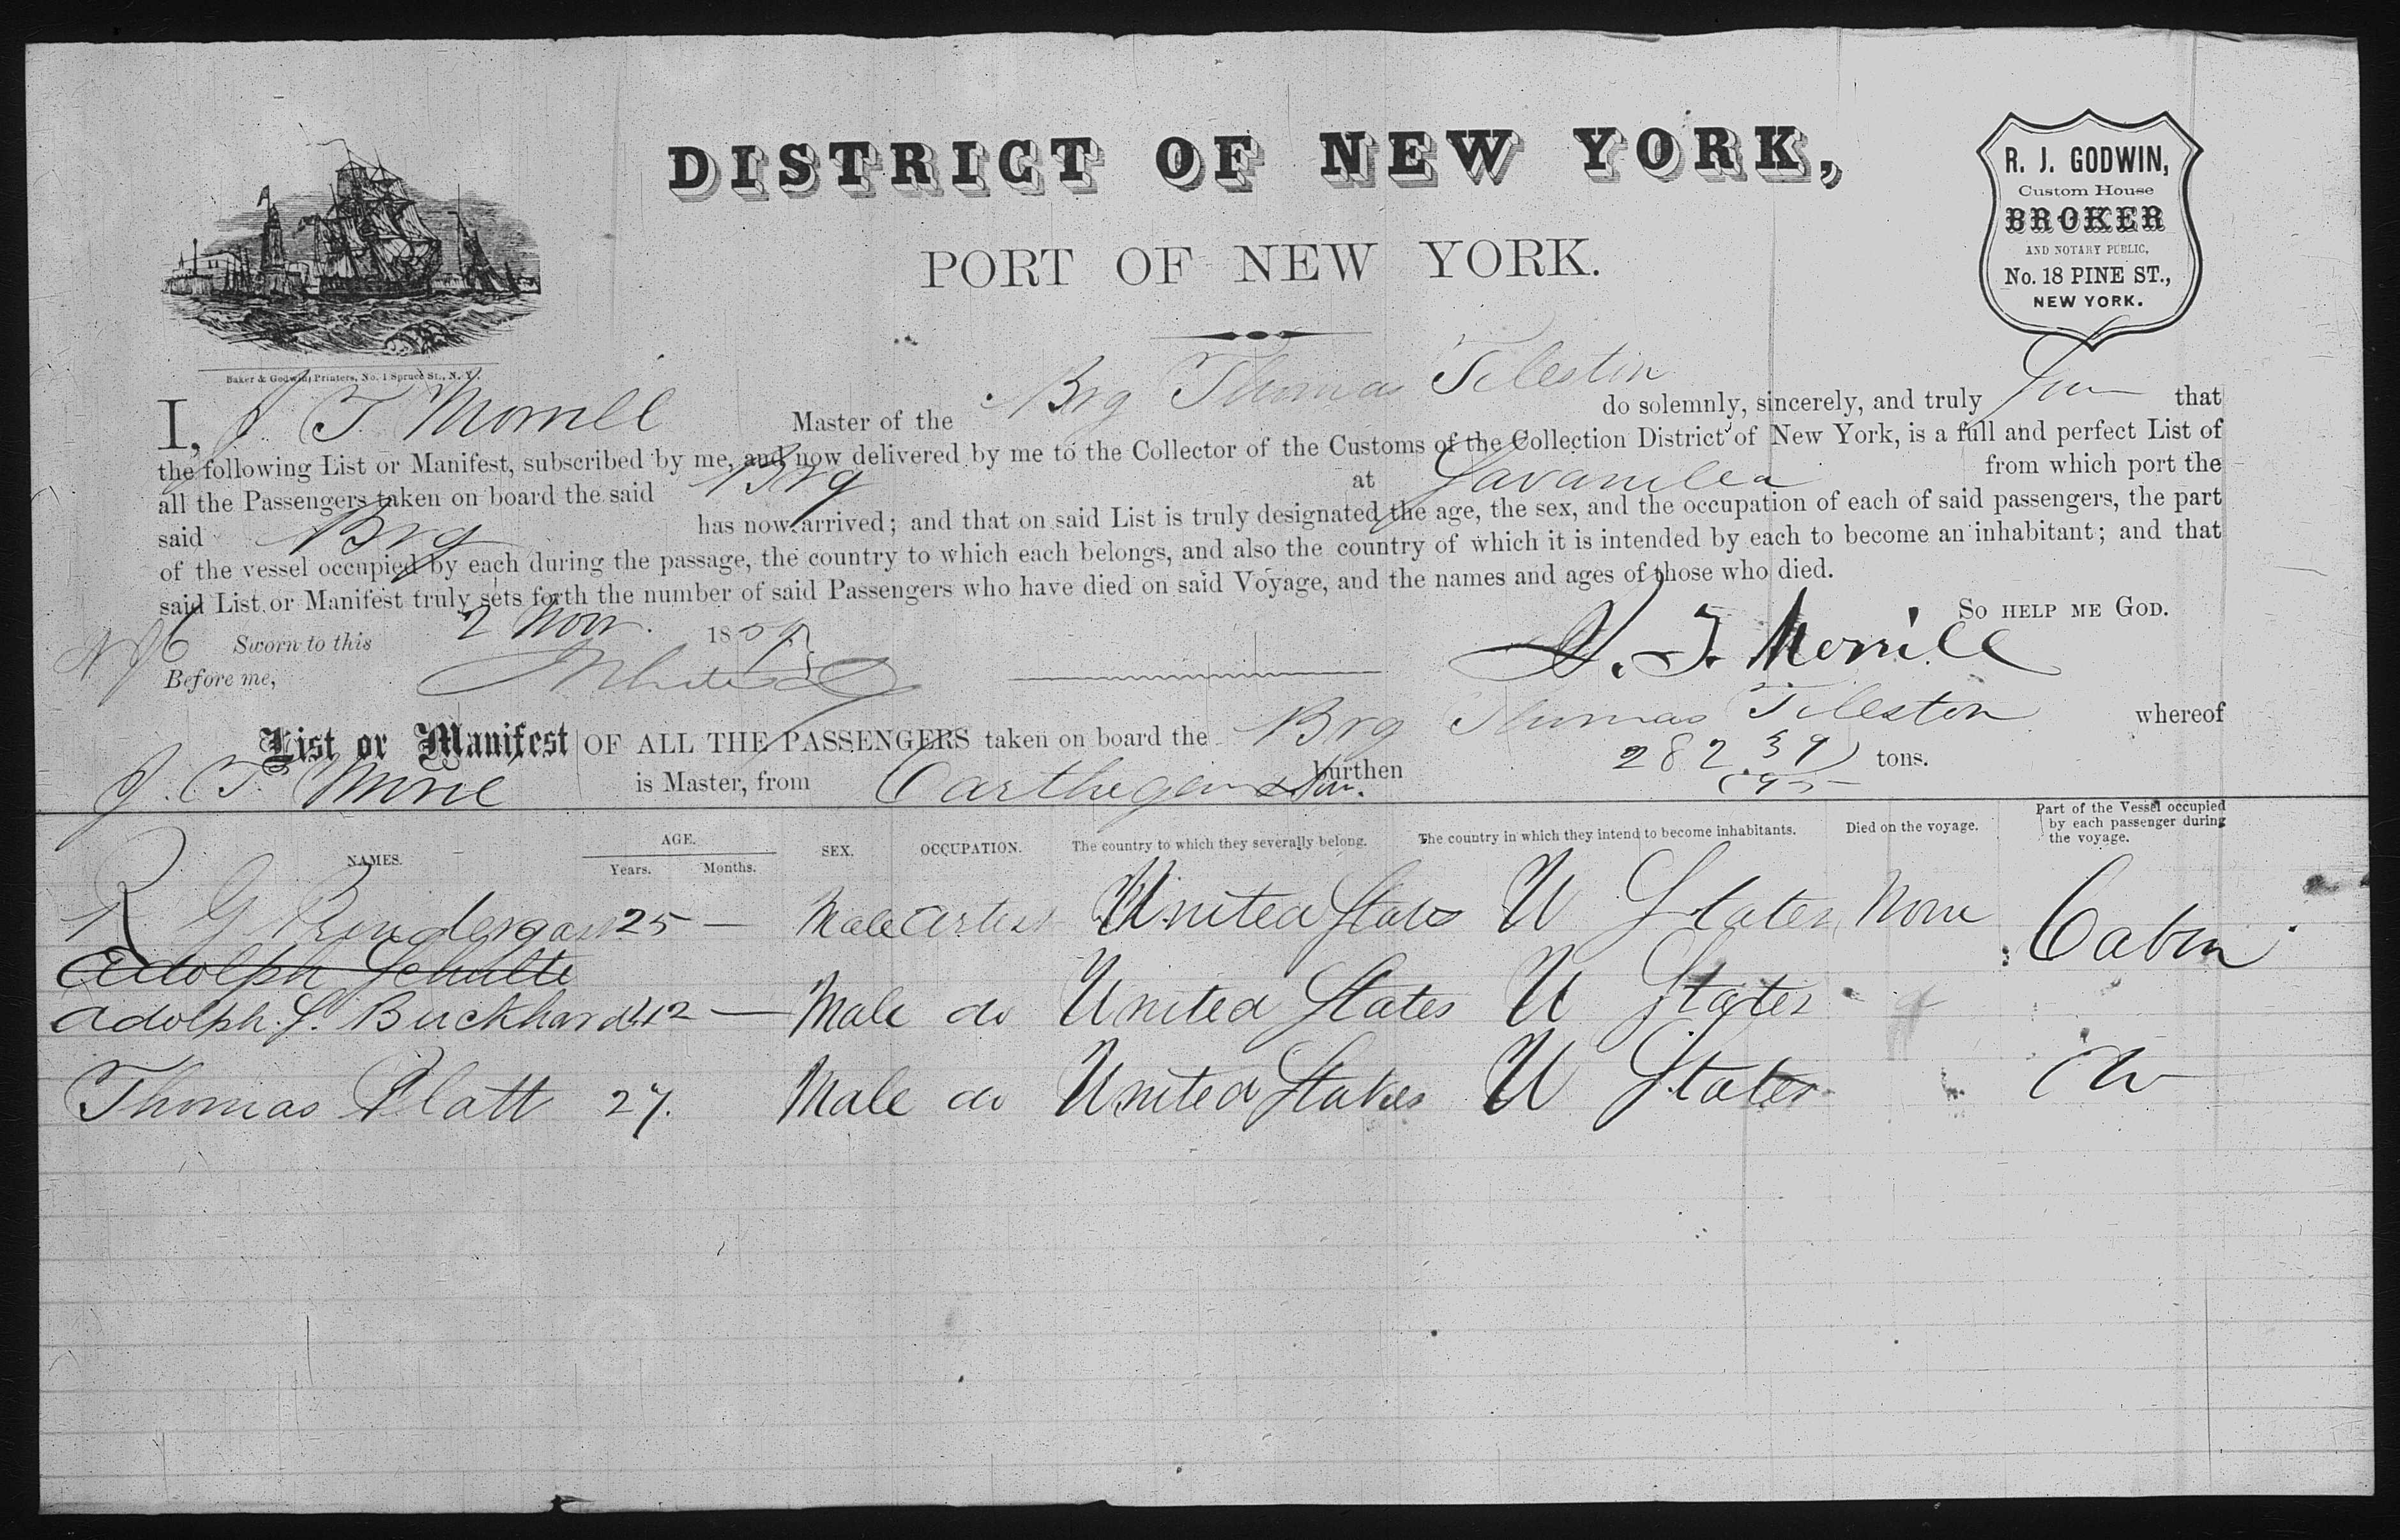 DISTRICT OF NEW YORK,
PORT OF NEW YORK.
R. J. GODWIN,
Custom House
BROKER
AND NOTARY PUBLIC,
No. 18 PINE ST.,
NEW YORK.
Baker & Godwin, Printers, No. 1 Spruce St., N. Y.
I, J. T. Morrill Master of the Brg Thomas Tileston do solemnly, sincerely, and truly that
the following List or Manifest, subscribed by me, and now delivered by me to the Collector of the Customs of the Collection District of New York, is a full and perfect List of
all the Passengers taken on board the said Brg at Savanilla from which port the
said Brg has now arrived; and that on said List is truly designated the age, the sex, and the occupation of each of said passengers, the part
of the vessel occupied by each during the passage, the country to which each belongs, and also the country of which it is intended by each to become an inhabitant; and that
said List or Manifest truly sets forth the number of said Passengers who have died on said Voyage, and the names and ages of those who died.
SO HELP ME GOD.
Sworn to this 2 Novr. 1859
Before me,
J. T. Morrill
List or Manifest OF ALL THE PASSENGERS taken on board the Brg Thomas Tileston whereof
J. T. is Master, from burthen 282 39/95 tons.
NAMES. AGE. Years. Months. SEX. OCCUPATION. The country to which they severally belong. The country in which they intend to become inhabitants. Died on the voyage. Part of the Vessel occupied by each passenger during the voyage.
R G Prendergast 25 — Male Artist United States U States None Cabin
Adolph Schulte
Adolph. S. Buckhardt 42 — Male do United States U States
Thomas Platt 27. Male do United States U States do